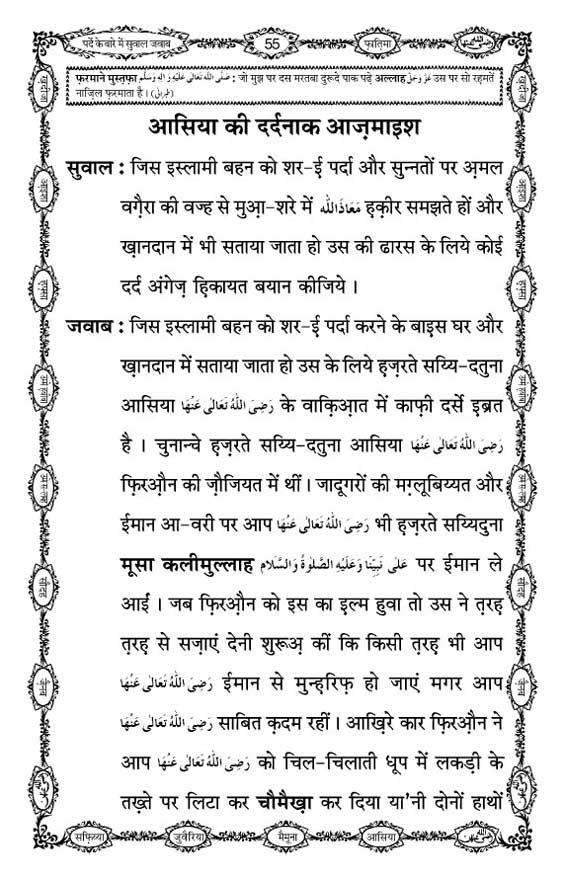 पर्दे के बारे में सुवाल जवाब
55
फ़ातिमा
फ़रमाने मुस्तफ़ा صَلَّى اللهُ تَعَالٰى عَلَيْهِ وَاٰلِهٖ وَسَلَّم : जो मुझ पर दस मरतबा दुरूदे पाक पढ़े अल्लाह عَزَّ وَجَلَّ उस पर सो रहमतें
नाज़िल फ़रमाता है। (طبرانی)
आसिया की दर्दनाक आज़माइश
सुवाल : जिस इस्लामी बहन को शर-ई पर्दा और सुन्नतों पर अ़मल
वग़ैरा की वज्ह से मुआ़-शरे में مَعَاذَالله ह़क़ीर समझते हों और
ख़ानदान में भी सताया जाता हो उस की ढारस के लिये कोई
दर्द अंगेज़ ह़िकायत बयान कीजिये ।
जवाब : जिस इस्लामी बहन को शर-ई पर्दा करने के बाइस घर और
ख़ानदान में सताया जाता हो उस के लिये ह़ज़रते सय्यि-दतुना
आसिया رَضِىَ اللهُ تَعَالٰى عَنْهَا के वाक़िआ़त में काफ़ी दर्से इ़ब्रत
है । चुनान्चे ह़ज़रते सय्यि-दतुना आसिया رَضِىَ اللهُ تَعَالٰى عَنْهَا
फ़िरऔ़न की ज़ौजियत में थीं । जादूगरों की मग़्लूबिय्यत और
ईमान आ-वरी पर आप رَضِىَ اللهُ تَعَالٰى عَنْهَا भी ह़ज़रते सय्यिदुना
मूसा कलीमुल्लाह عَلٰى نَبِيِّنَا وَعَلَيْهِ الصَّلٰوةُ وَالسَّلَام पर ईमान ले
आईं । जब फ़िरऔ़न को इस का इ़ल्म हुवा तो उस ने त़रह़
त़रह़ से सज़ाएं देनी शुरूअ़ कीं कि किसी त़रह़ भी आप
رَضِىَ اللهُ تَعَالٰى عَنْهَا ईमान से मुन्ह़रिफ़ हो जाएं मगर आप
رَضِىَ اللهُ تَعَالٰى عَنْهَا साबित क़दम रहीं । आख़िरे कार फ़िरऔ़न ने
आप رَضِىَ اللهُ تَعَالٰى عَنْهَا को चिल-चिलाती धूप में लकड़ी के
तख़्ते पर लिटा कर चौमैख़ा कर दिया या'नी दोनों हाथों
सफ़िय्या
जुवैरिया
मैमूना
आसिया